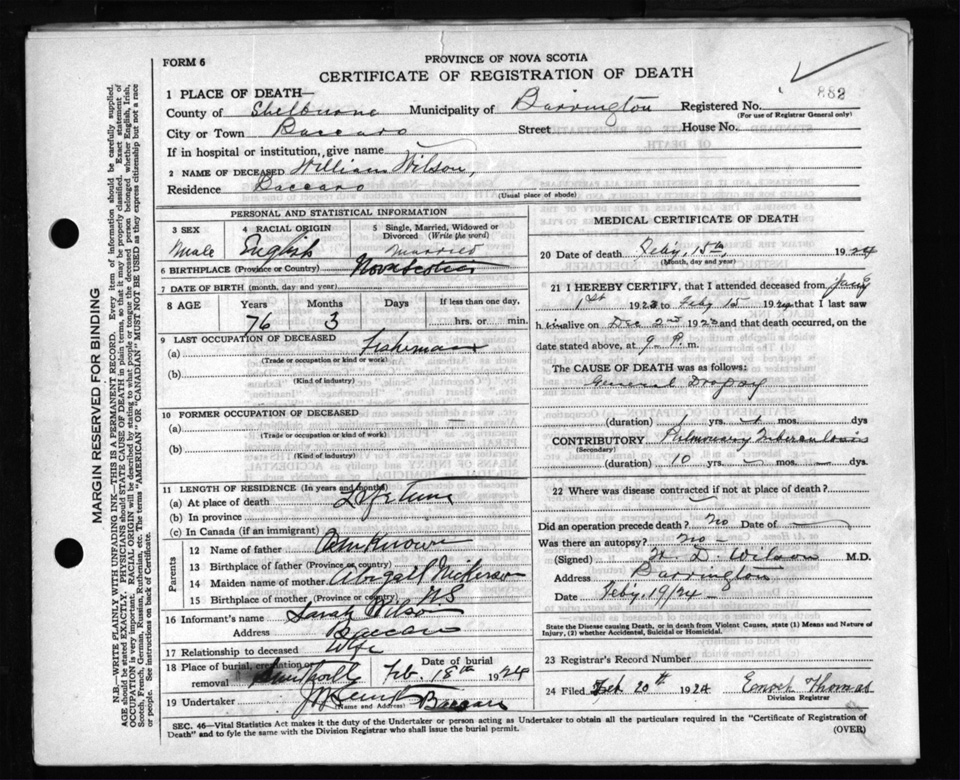 FORM 6
PROVINCE OF NOVA SCOTIA
CERTIFICATE OF REGISTRATION OF DEATH
882
1 PLACE OF DEATH—
County of Shelburne Municipality of Barrington Registered No.
(For use of Registrar General only)
City or Town Baccaro Street House No.
If in hospital or institution, give name
2 NAME OF DECEASED William Wilson,
Residence Baccaro
(Usual place of abode)
PERSONAL AND STATISTICAL INFORMATION
3 SEX
Male
4 RACIAL ORIGIN
English
5 Single, Married, Widowed or Divorced (Write the word)
Married
6 BIRTHPLACE (Province or Country) Nova Scotia
7 DATE OF BIRTH (month, day and year)
8 AGE Years Months Days If less than one day,
76 3 hrs. or min.
9 LAST OCCUPATION OF DECEASED
(a) Fisherman
(Trade or occupation or kind of work)
(b)
(Kind of industry)
10 FORMER OCCUPATION OF DECEASED
(a) —
(Trade or occupation or kind of work)
(b)
(Kind of industry)
11 LENGTH OF RESIDENCE (In years and months)
(a) At place of death Life Time
(b) In province
(c) In Canada (if an immigrant)
Parents
12 Name of father Unknown
13 Birthplace of father (Province or country)
14 Maiden name of mother Abigail Nickerson
15 Birthplace of mother (Province or country) NS
16 Informant's name Sarah Wilson
Address Baccaro
17 Relationship to deceased Wife
18 Place of burial, cremation or removal Smithville
Date of burial
Feb. 18th 1924
19 Undertaker Baccaro
(Name and Address)
MEDICAL CERTIFICATE OF DEATH
20 Date of death Feby, 15th, 1924
(Month, day and year)
21 I HEREBY CERTIFY, that I attended deceased from Jany
1st 192 to Feby 15 1924 that I last saw
h im alive on Dec 2nd 192 and that death occurred, on the
date stated above, at 9 P. m.
The CAUSE OF DEATH was as follows:
General Dropsy
(duration) 1 yrs. mos. dys
CONTRIBUTORY Pulmonary Tuberculosis
(Secondary)
(duration) 10 yrs. mos. dys.
22 Where was disease contracted if not at place of death?
Did an operation precede death? No Date of
Was there an autopsy? No —
(Signed) H. D. Wilson M.D.
Address Barrington
Date Feby 19/24 —
State the Disease causing Death, or in death from Violent Causes, state (1) Means and Nature of Injury, (2) whether Accidental, Suicidal or Homicidal.
23 Registrar's Record Number
24 Filed Feb 20th 1924 Enoch Thomas
Division Registrar
SEC. 46—Vital Statistics Act makes it the duty of the Undertaker or person acting as Undertaker to obtain all the particulars required in the "Certificate of Registration of
Death" and to fyle the same with the Division Registrar who shall issue the burial permit.
(OVER)
MARGIN RESERVED FOR BINDING
N.B.—WRITE PLAINLY WITH UNFADING INK—THIS IS A PERMANENT RECORD. Every item of information should be carefully supplied.
AGE should be stated EXACTLY. PHYSICIANS should STATE CAUSE OF DEATH in plain terms, so that it may be properly classified. Exact statement of
OCCUPATION is very important. RACIAL ORIGIN will be described by stating to what people or tongue the deceased person belonged whether English, Irish,
Scotch, French, German, Russian, Ruthenian, etc. The terms "AMERICAN" OR "CANADIAN" MUST NOT BE USED as they express citizenship but not a race
or people. See instructions on back of Certificate.